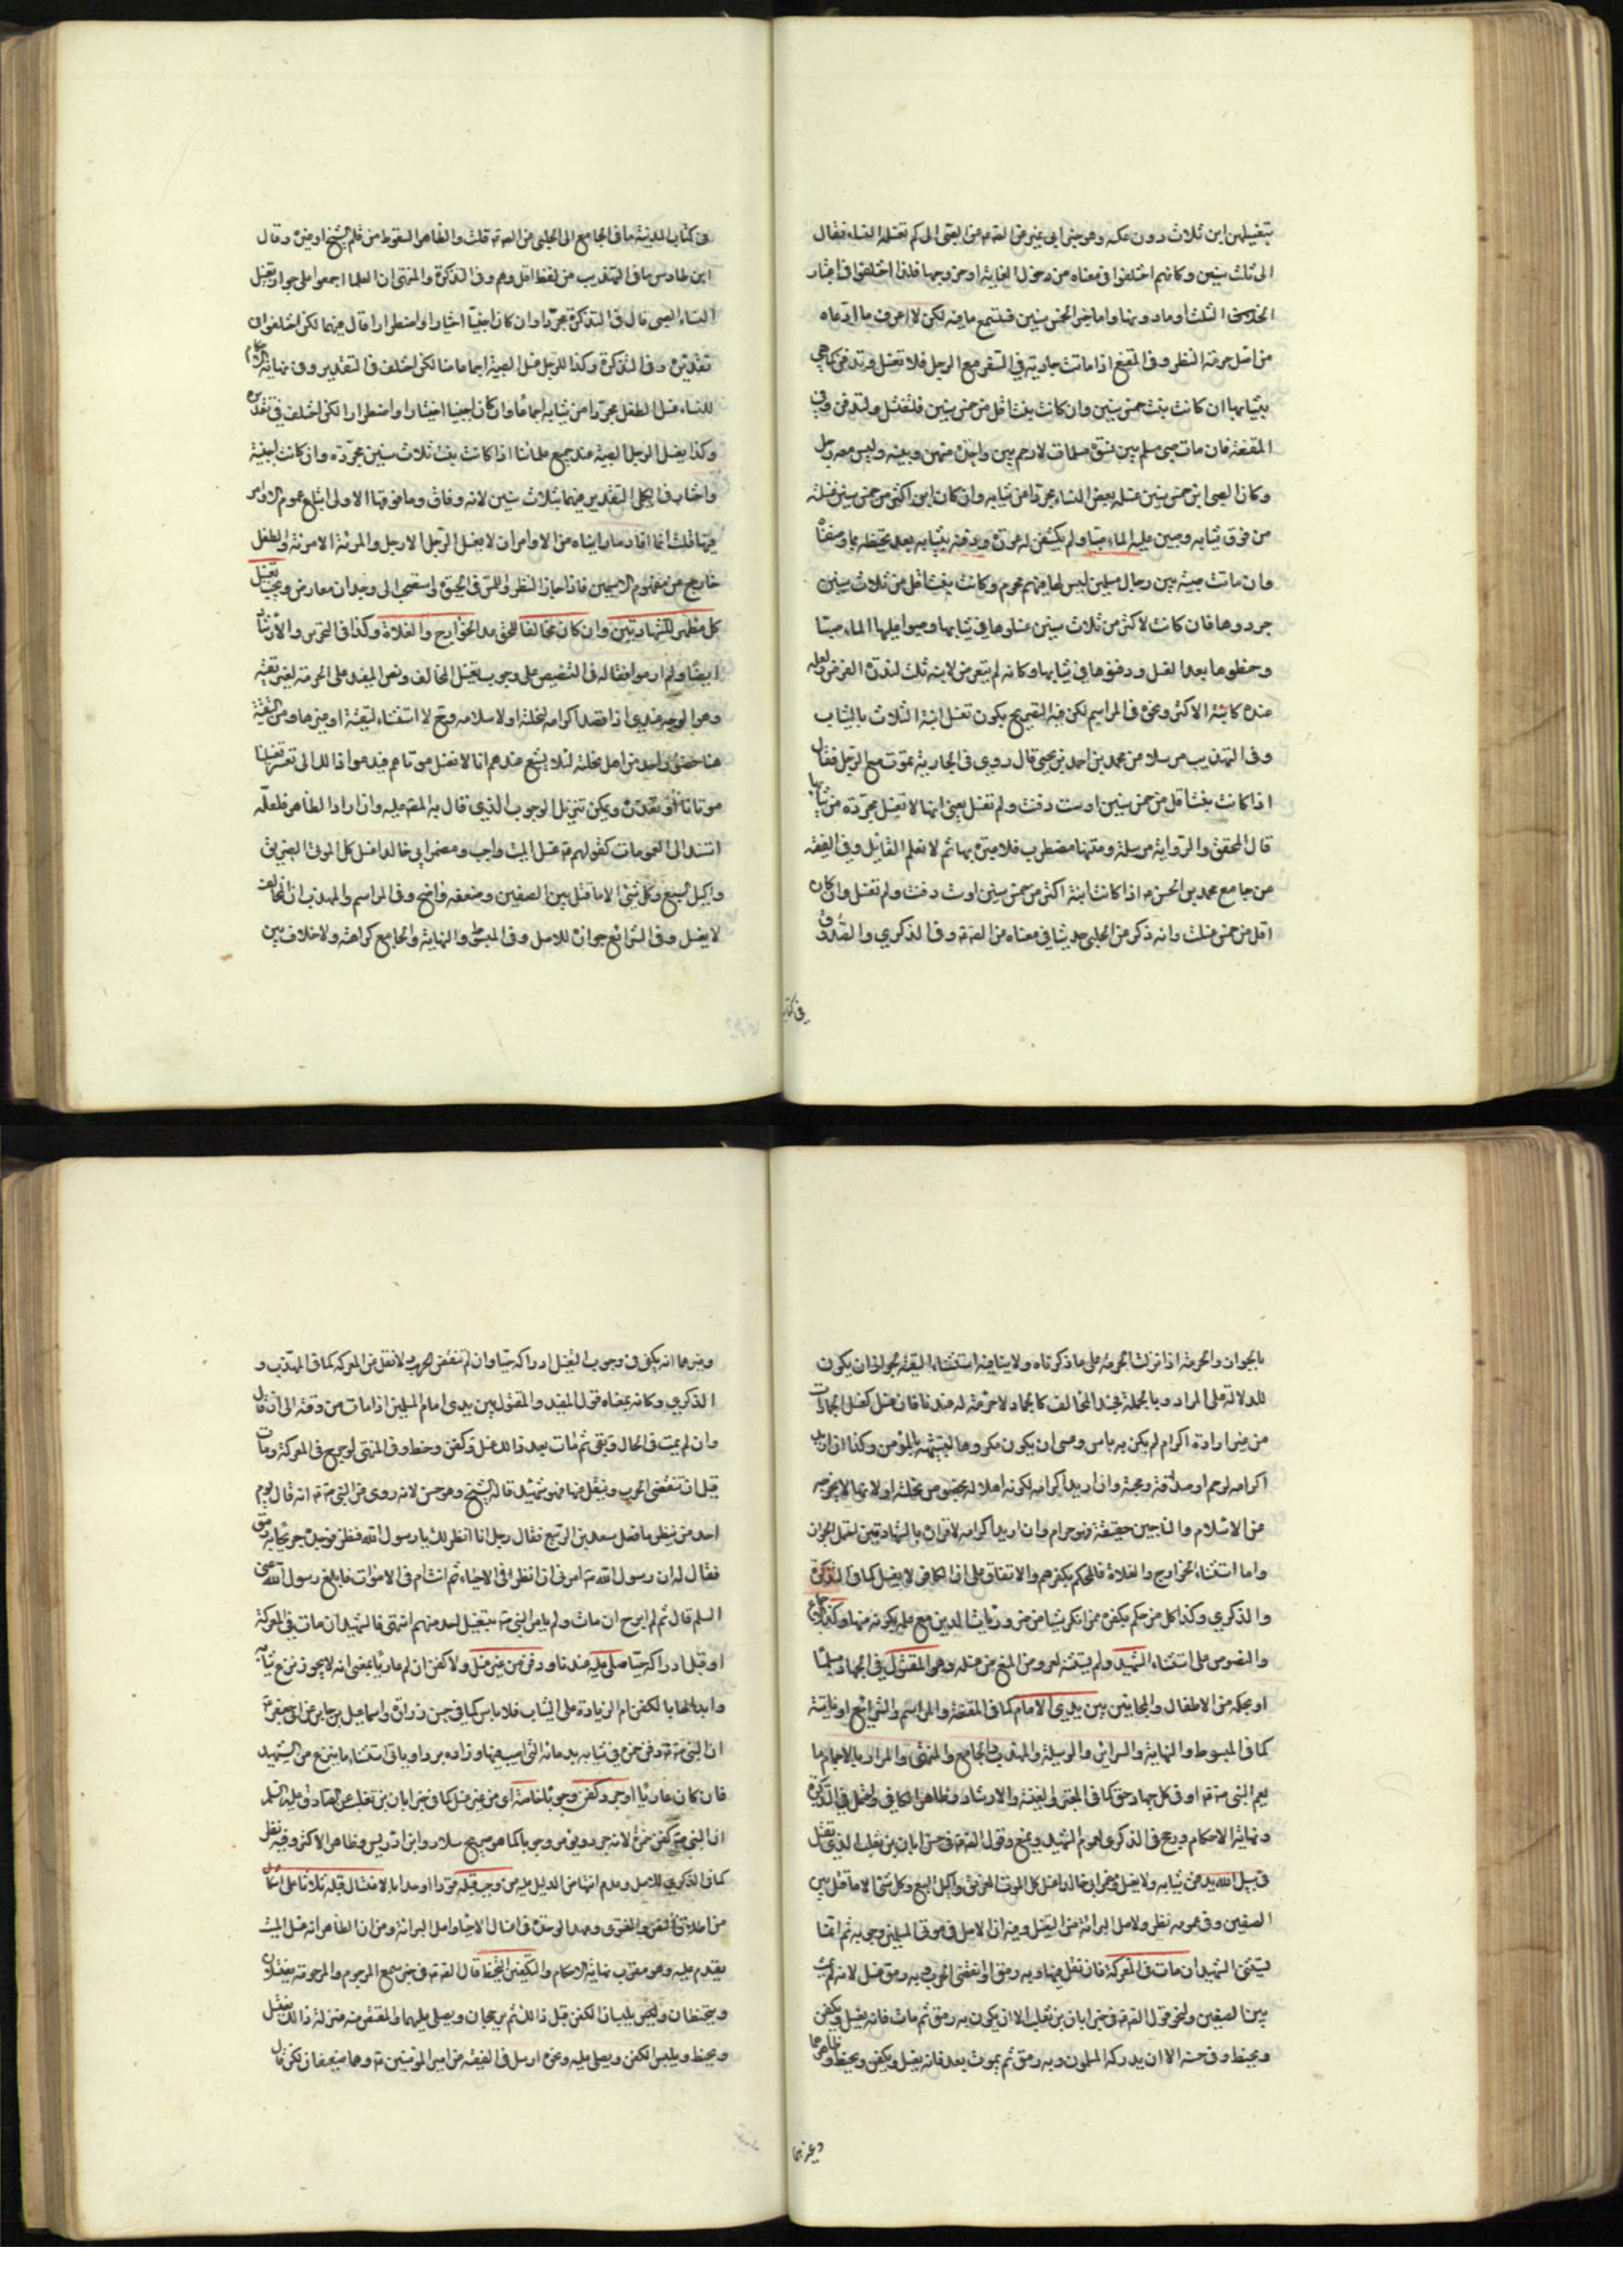 بتغسيلهن ابن ثلاث دون عكسه وهو خبر ابي نمير عن الصادق عن الصبى الى كم تغسله النساء فقال
الى ثلث سنين وكانهم اختلفوا في معناه من دخول الغاية او خروجها فلذا اختلفوا في اختيار
التحديد الثلث او مادونها واما خبر الخمس سنين فستسمع ما فيه لكن لا اعرف ما ادعاه
من اصل حرمة النظر وفي المقنع اذا ماتت جارية في السفر مع الرجل فلا تغسل وتدفن كما هي
بثيابها ان كانت بنت خمس سنين وان كانت بنت اقل من خمس سنين فلتغسل ولتدفن وفي
المقنعة فان مات صبي مسلم بين نسوة مسلمات لا رحم بين واحدة منهن وبينه وليس معه رجل
وكان الصبى ابن خمس سنين غسله بعض النساء مجردا من ثيابه وان كان ابن اكثر من خمس سنين غسلنه
من فوق ثيابه وصببن عليه الماء صبا ولم يكشفن له عورة ودفنه بثيابه بعد تحنيطه بما وصفناه
وان ماتت صبية بين رجال مسلمين ليس لها فيهم محرم وكانت بنت اقل من ثلاث سنين
جردوها فان كانت لاكثر من ثلاث سنين غسلوها في ثيابها وصبوا عليها الماء صبا
وحنطوها بعد الغسل ودفنوها في ثيابها وكانه لم يتعرض لابنة ثلث لندرة الفرض ولعله
عنده كابنة الاكثر ونحوه في المراسم لكن فيه التصريح بكون تغسل ابنة الثلاث بالثياب
وفي التهذيب مرسلا من محمد بن احمد بن يحيى قال روى في الجارية تموت مع الرجل فقال
اذا كانت بنت اقل من خمس سنين او ست دفنت ولم تغسل يعنى انها لا تغسل مجردة من ثيابها
قال المحقق والرواية مرسلة ومتنها مضطرب فلا عبرة بها ثم لا نعلم القائل وفي الفقيه
من جامع محمد بن الحسن اذا كانت ابنة اكثر من خمس سنين او ست دفنت ولم تغسل وان كان
اقل من خمس غسلت وانه ذكر من الحلبى حديثا في معناه من الصادق وفي الذكرى والصدوق
في كتاب
في كتاب المدينة ما في الجامع الى الحلبى من الصادق قلت والظاهر السقوط من قلم الشيخ او غيره وقال
ابن طاوس ما في التهذيب من لفظ اقل وهم وفي التذكرة والمنتهى ان العلما اجمعوا على جواز تغسيل
النساء الصبى قال في التذكرة مجردا وان كان اجنبيا اختيارا واضطرارا قال فيهما لكن اختلفوا في
تقديره وفي التذكرة وكذا للرجل غسل الصبية اجماعا منا لكن اختلف في التقدير وفي نهاية الاحكام
للنساء غسل الطفل مجردا من ثيابه اجماعا وان كان اجنبيا اختيارا واضطرارا لكن اختلف في تقديره
وكذا يغسل الرجل الصبية عند جميع علمائنا اذا كانت بنت ثلاث سنين مجردة وان كانت اجنبية
واختار في الكل التقدير فيهما بثلاث سنين لانه وفاق وما فوقها الاولى اتباع عموم الاوامر
فيها قلت انما افاد ما راينا من الاوامر ان لا يغسل الرجل الا رجل والمرئة الا مرئة والطفل
خارج من مفهوم الاسمين فاذا جاز النظر واللمس في الحيوة استصحب الى وجدان معارض ويجب تغسيل
كل مظهر للشهادتين وان كان مخالفا للحق عدا الخوارج والغلاة وكذا في التحرير والارشاد
ايضا ولم ار موافقا له في التنصيص على وجوب تغسل المخالف ونص المفيد على الحرمة لغير تقية
وهو الوجه عندي اذا قصد اكرامه لنحلته او لاسلامه ومع لا استثناء لتقية او غيرها ومن التقية
هنا حضور واحد من اهل نحلته لئلا يشيع عندهم انا لا نغسل موتاهم فيدعوا ذلك الى تعسر تغسيلنا
موتانا او تعذره ويمكن تنزيل الوجوب الذي قال به المصنف عليه وان اراد الظاهر فلعله
استند الى العمومات كقولهم غسل الميت واجب ومضمر ابي خالد اغسل كل الموتى الغريق
واكيل السبع وكل شئ الا ما قتل بين الصفين وضعفه واضح وفي المراسم والمهذب ان المخالف
لا يغسل وفي الشرائع جوازه للاصل وفي المبسوط والنهاية والجامع كراهته ولا خلاف بين
بالجواز والحرمة اذا نزلت الحرمة على ما ذكرناه ولا ينافيه استثناء التقية لجواز ان يكون
للدلالة على المراد وبالجملة فجسد المخالف كالجماد لا حرمة له عندنا فان غسل كغسل الجمادات
من غير ارادة اكرام لم يكن به باس وعسى ان يكون مكروها لتشبيهه بالمؤمن وكذا ان اريد
اكرامه لرحم او صداقة ومحبة وان اريد اكرامه لكونه اهلا له لخصوص نحلته او لانها لا تخرجه
من الاسلام والناجين حقيقة فهو حرام وان اريد اكرامه لاقراره بالشهادتين احتمل الجواز
واما استثناء الخوارج والغلاة فللحكم بكفرهم والاتفاق على ان الكافر لا يغسل كما في التذكرة
والذكرى وكذا كل من حكم بكفره ممن انكر شيئا من ضروريات الدين مع علمه بكونه منها وكذا اجماع
والنصوص على استثناء الشهيد ولم يستثنه لعروض المنع من غسله وهو المقتول في الجهاد مسلما
او بحكمه من الاطفال والمجانين بين يدى الامام كما في المقنعة والمراسم والشرائع او نائبه
كما في المبسوط والنهاية والسرائر والوسيلة والمهذب والجامع والمنتهى والمراد بالامام ما
يعم النبى او في كل جهاد حق كما في المعتبر والغنية والارشاد وظاهر الكافي واحتمل في التذكرة
ونهاية الاحكام ورجح في الذكرى لعموم الشهيد ويمنع وقول الصادق في حسن ابان بن تغلب الذي يقتل
في سبيل الله يدفن في ثيابه ولا يغسل ومضمر ابي خالد اغسل كل الموتى الغريق واكيل السبع وكل شئ الا ما قتل بين
الصفين وفي عمومه نظر ولاصل البرائة من الغسل وفيه ان الاصل في موتى المسلمين وجوبه ثم انما
يستثنى الشهيد ان مات في المعركة فان نقل عنها وبه رمق او انقضى الحرب وبه رمق غسل لانه لم يمت
بين الصفين ولنحو قول الصادق في خبر ابان بن تغلب الا ان يكون به رمق ثم مات فانه يغسل ويكفن
ويحنط وفي حسنه الا ان يدركه المسلمون وبه رمق ثم يموت بعد فانه يغسل ويكفن ويحنط وظاهرهما
وغيرهما
وغيرهما انه يكفى في وجوب الغسل ادراكه حيا وان لم تنقض الحرب ولا نقل من المعركة كما في المهذب و
الذكرى وكانه بمعناه قول المفيد والمقتول بين يدى امام المسلمين اذا مات من وقته الى ان قال
وان لم يمت في الحال وبقى ثم مات بعد ذلك غسل وكفن وحنط وفي المنتهى لو جرح في المعركة ومات
قبل ان تنقضى الحرب وينقل منها فهو شهيد قاله الشيخ وهو حسن لانه روى من النبى انه قال يوم
احد من ينظر ما فعل سعد بن الربيع فقال رجل انا انظر لك يا رسول الله فنظر فوجده جريحا به رمق
فقال له ان رسول الله امرنى ان انظر في الاحياء انت ام في الاموات فابلغ رسول الله عنى
السلم قال ثم لم ابرح ان مات ولم يامر النبى بتغسيل احد منهم انتهى فالشهيد ان مات في المعركة
او قبل ادراكه حيا صلى عليه عندنا ودفن من غير غسل ولا كفن ان لم عاريا بمعنى انه لا يجوز نزع ثيابه
وابدالها بالكفن ام الزيادة على الثياب فلا باس كما في حسن زرارة واسماعيل بن جابر عن ابى جعفر
ان النبى دفن حمزة في ثيابه بدمائه التى اصيب فيها وزاده بردا وياتى استثناء ما ينزع من الشهيد
فان كان عاريا او جرد كفن وجوبا خاصة اى من غير غسل كما في خبر ابان بن تغلب عن الصادق عليه السلم
ان النبى كفن حمزة لانه جرد ويؤمر وجوبا كما هو صريح سلار وابن ادريس وظاهر الاكثر وفيه نظر
كما في الذكرى للاصل وعدم انتهاض الدليل عليه من وجب قتله قودا او حدا بالاغتسال قبله ثلاثا على اشكال
من اطلاق النص والفتوى وعهد الوحدة في اغسال الاحياء واصل البرائة ومن ان الظاهر انه غسل الميت
يقدم عليه وهو مقرب نهاية الاحكام والتكفين والتحنيط قال الصادق في خبر مسمع المرجوم والمرجومة يغتسلان
ويتحنطان ويلبسان الكفن قبل ذلك ثم يرجمان ويصلى عليهما والمقتص منه بمنزلة ذلك يغتسل
ويحنط ويلبس الكفن ويصلى عليه ونحوه ارسل في الفقيه من امير المؤمنين وهما ضعيفان لكن قال